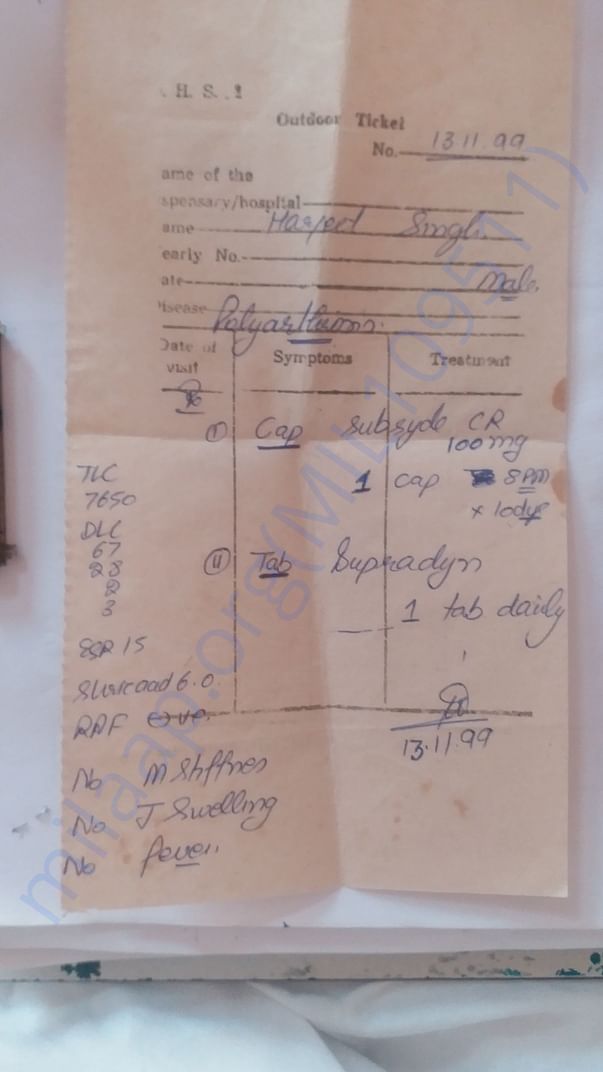 . H. S. .1
Outdoor Ticket
No. 13.11.99
ame of the
spensary/hospital
ame Harjeet Singh.
early No.
ate Male.
isease Polyarthritis.
Date of visit Symptoms Treatment
(i) Cap Subsyde CR
100mg
1 cap 8PM
x 10dys
(ii) Tab Supradyn
1 tab daily
13.11.99
TLC
7650
DLC
67
28
2
3
ESR 15
S Uric acid 6.0.
RAF ⊖ve.
No M Stiffnes
No J Swelling
No fever.
milaap.org(MIL109511)